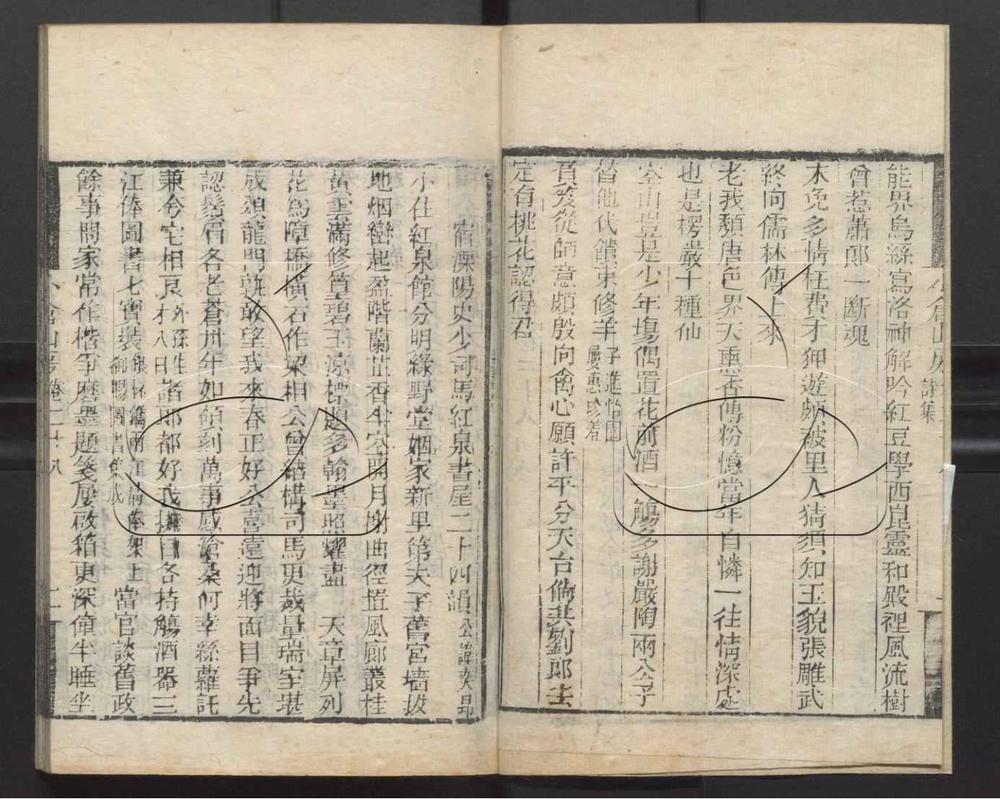 小倉山房詩集
能界烏絲寫洛神解吟紅豆學西崑靈和殿裡風流樹
曾惹蕭郎一斷魂
未免多情枉費才狎遊頗被里人猜須知玉貌張雕武
終向儒林傳上來
老我頹唐色界天熏香傅粉憶當年自憐一往情深處
也是楞嚴十種仙
空山豈是少年場偶置花前酒一觴多謝嚴陶兩公子
替他代饋束修羊
子進怡園
屢惠珍羞
有發從師意頗殷向禽心願許平分天台倘共劉郎去
定有桃花認得君
宿溧陽史少司馬紅泉書屋二十四韻公諱奕昂
小住紅泉館分明綠野堂姻家新甲第天子舊宮墻拔
地烟巒起盈階蘭芷香半空開月榭曲徑置風廊叢桂
黃雲滿修篁碧玉涼標題多翰墨照耀盡 天章屏列
花為障橋橫石作梁相公曾締構司馬更裁量瑞室堪
成頌龍門敢望我來春正好公喜遠迎將面目爭先
認鬚眉各老蒼卅年如頃刻萬事感滄桑何幸絲蘿託
兼今宅相良外孫生才八日諸郎都好我 目各持觴酒器三
江俸圖書七寶裝 御賜圖書集成 架上當官談舊政
餘事問家常作楷爭磨墨題箋屢啟箱更深僮半睡坐
小倉山房 卷二十八